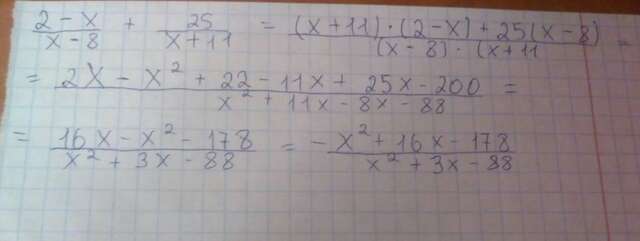 (2 - x)/(x - 8) + 25/(x + 11) = ((x + 11) · (2 - x) + 25(x - 8))/((x - 8) · (x + 11) =
= (2x - x² + 22 - 11x + 25x - 200)/(x² + 11x - 8x - 88) =
= (16x - x² - 178)/(x² + 3x - 88) = (-x² + 16x - 178)/(x² + 3x - 88)